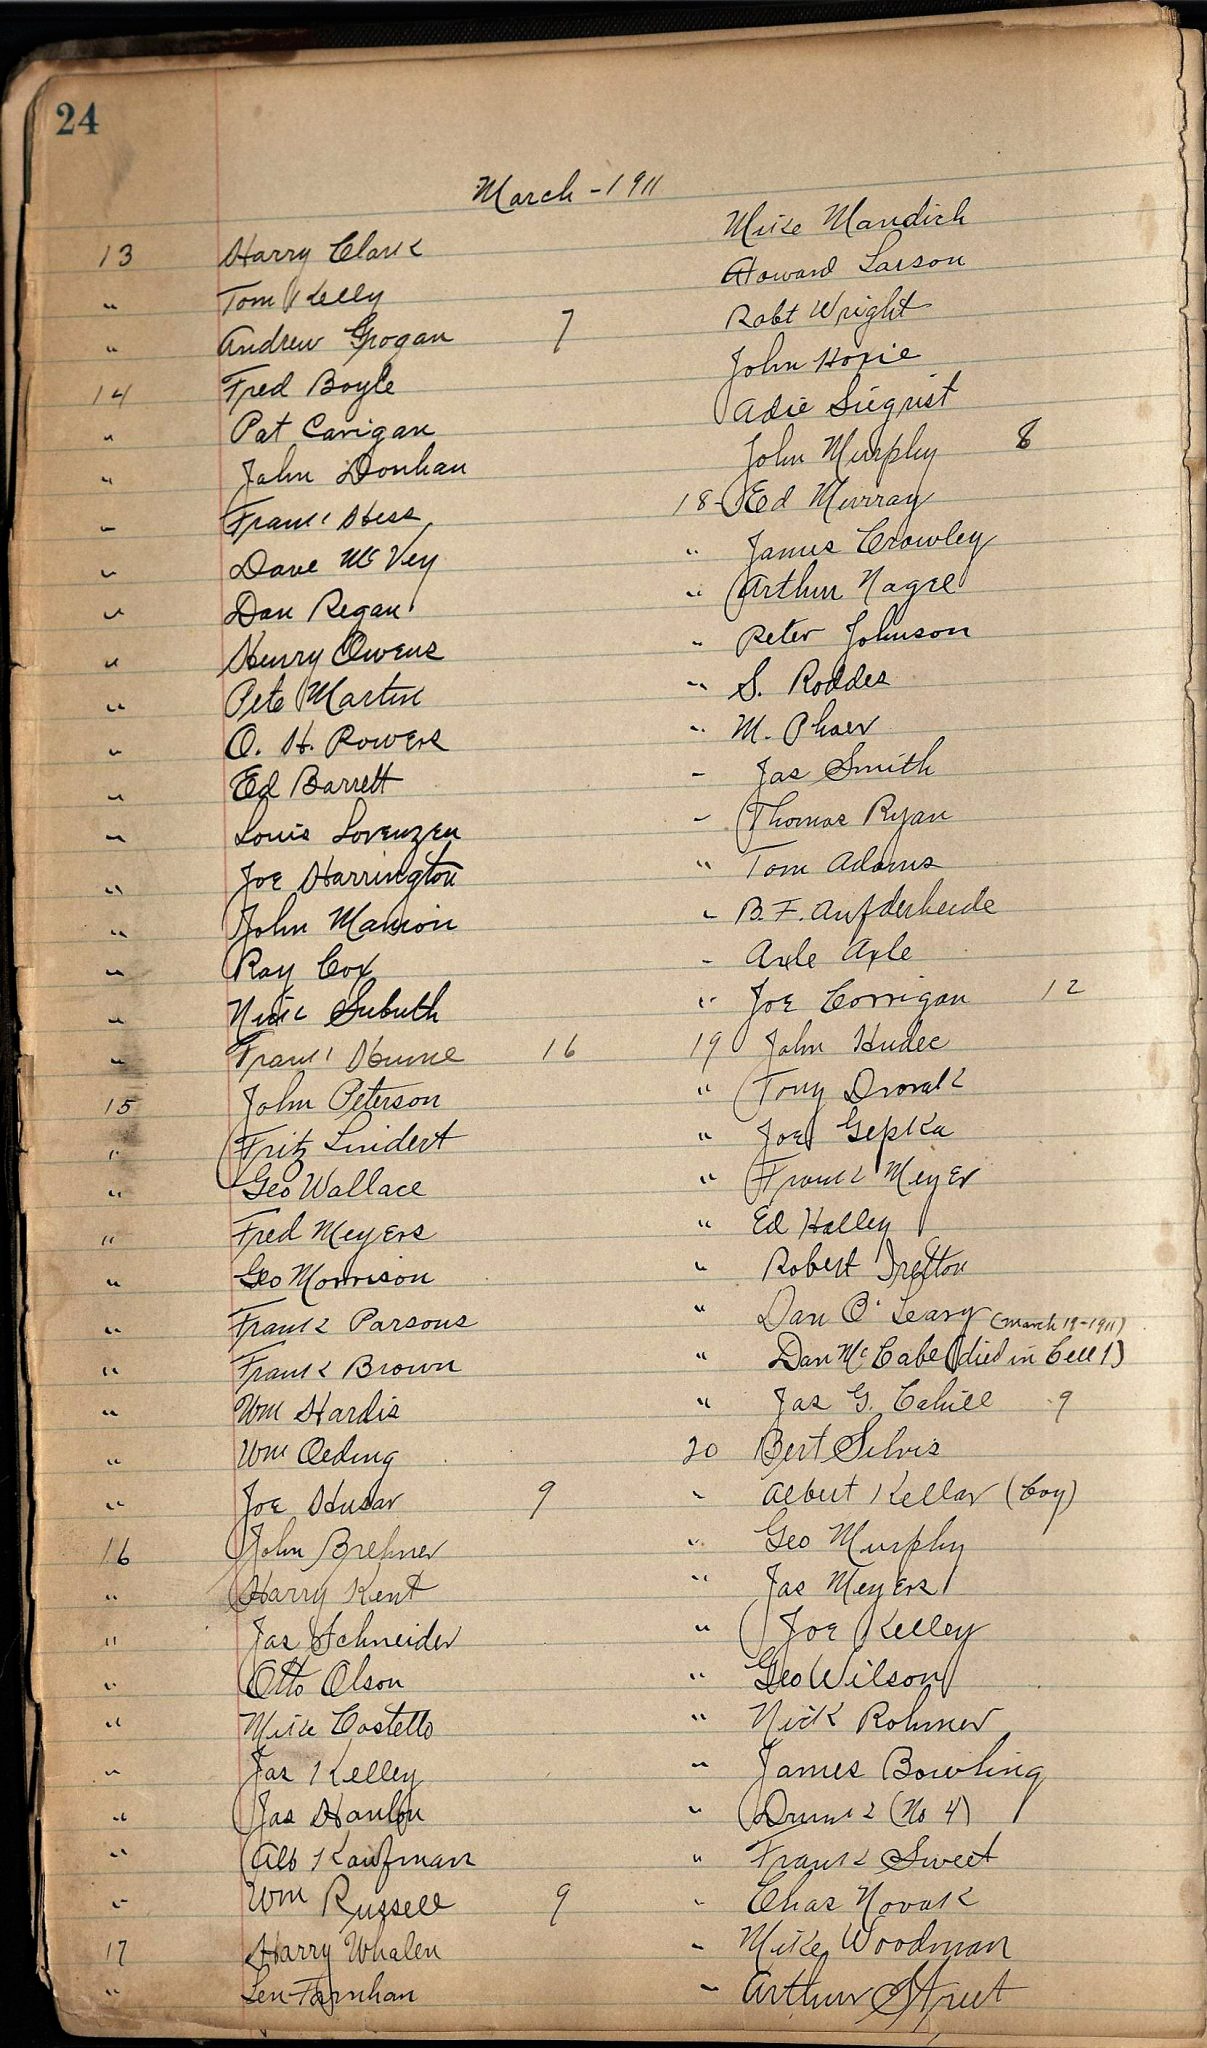 24
March - 1911
13 Harry Clark
" Tom Kelly
" Andrew Grogan 7
14 Fred Boyle
" Pat Carigan
" John Donhan
" Frank Hess
" Dave McVey
" Dan Regan
" Henry Owens
" Pete Martin
" O. H. Rowers
" Ed Barrett
" Louis Lorenzen
" Joe Harrington
" John Manion
" Ray Cox
" Nick Subuth
" Frank Hume 16
15 John Peterson
" Fritz Lindert
" Geo Wallace
" Fred Meyers
" Geo Morrison
" Frank Parsons
" Frank Brown
" Wm Hardis
" Wm Oeding
" Joe Husar 9
16 John Brehner
" Harry Kent
" Jas Schneider
" Otto Olson
" Mike Costello
" Jas Kelley
" Jas Hanlon
" Alb Kaufman
" Wm Russell 9
17 Harry Whalen
" Len Farnhan
Mike Mandich
Howard Larson
Robt Wright
John
Adie Siegrist
John Murphy 8
18- Ed Murray
" James Crowley
" Arthur Nagle
" Peter Johnson
" S. Roddes
" M. Phaer
" Jas Smith
" Thomas Ryan
" Tom Adams
" B. F. Aufderheide
" Axle Axle
" Joe Corrigan 12
19 John Hudec
" Tony Dvorak
" Joe Gepka
" Frank Meyer
" Ed Halley
" Robert Trefton
" Dan O'Leary (March 19-1911)
" Dan McCabe (died in Cell 1)
" Jas G. Cahill 9
20 Bert Silvis
" Albert Kellar (Boy)
" Geo Murphy
" Jas Meyers
" Joe Kelley
" Geo Wilson
" Nick Rohmer
" James Bowling
" Drunk (No 4)
" Frank Sweet
" Chas Novak
" Mike Woodman
" Arthur Street